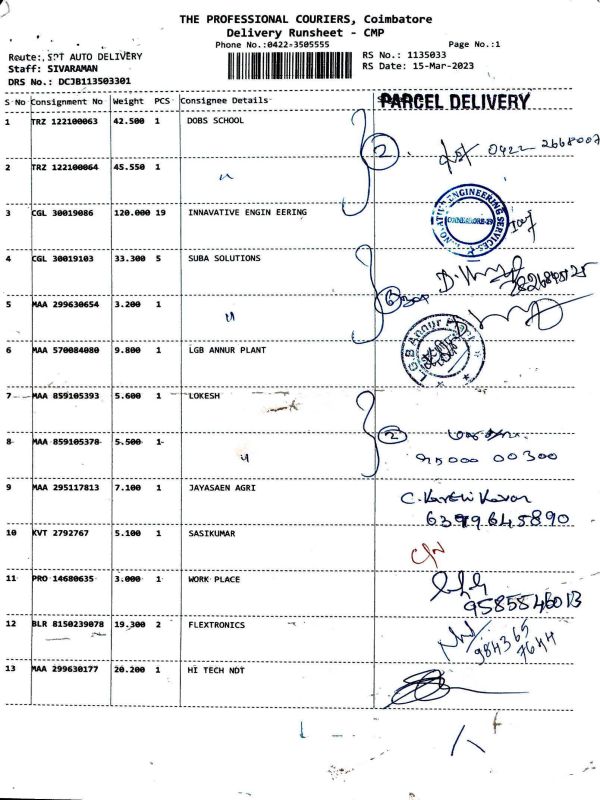 THE PROFESSIONAL COURIERS, Coimbatore
Delivery Runsheet - CMP
Phone No.:0422-3505555
Page No.:1
Route: SPT AUTO DELIVERY
RS No.: 1135033
Staff: SIVARAMAN
RS Date: 15-Mar-2023
DRS No.: DCJB113503301
S No Consignment No Weight PCS Consignee Details
PARCEL DELIVERY
1 TRZ 122100063 42.500 1 DOBS SCHOOL
2
0422 2668007
2 TRZ 122100064 45.550 1 "
3 CGL 30019086 120.000 19 INNAVATIVE ENGIN EERING
ENGINEERING SERVICES
COIMBATORE-29
4 CGL 30019103 33.300 5 SUBA SOLUTIONS
5 MAA 299630654 3.200 1 "
6 MAA 570084080 9.800 1 LGB ANNUR PLANT
L.G.B Annur Plant
7 MAA 859105393 5.600 1 LOKESH
2
8 MAA 859105378 5.500 1 "
95000 00300
9 MAA 295117813 7.100 1 JAYASAEN AGRI
6399645890
10 KVT 2792767 5.100 1 SASIKUMAR
C/N
11 PRO 14680635 3.000 1 WORK PLACE
9585546013
12 BLR 8150239078 19.300 2 FLEXTRONICS
984365
7644
13 MAA 299630177 20.200 1 HI TECH NDT